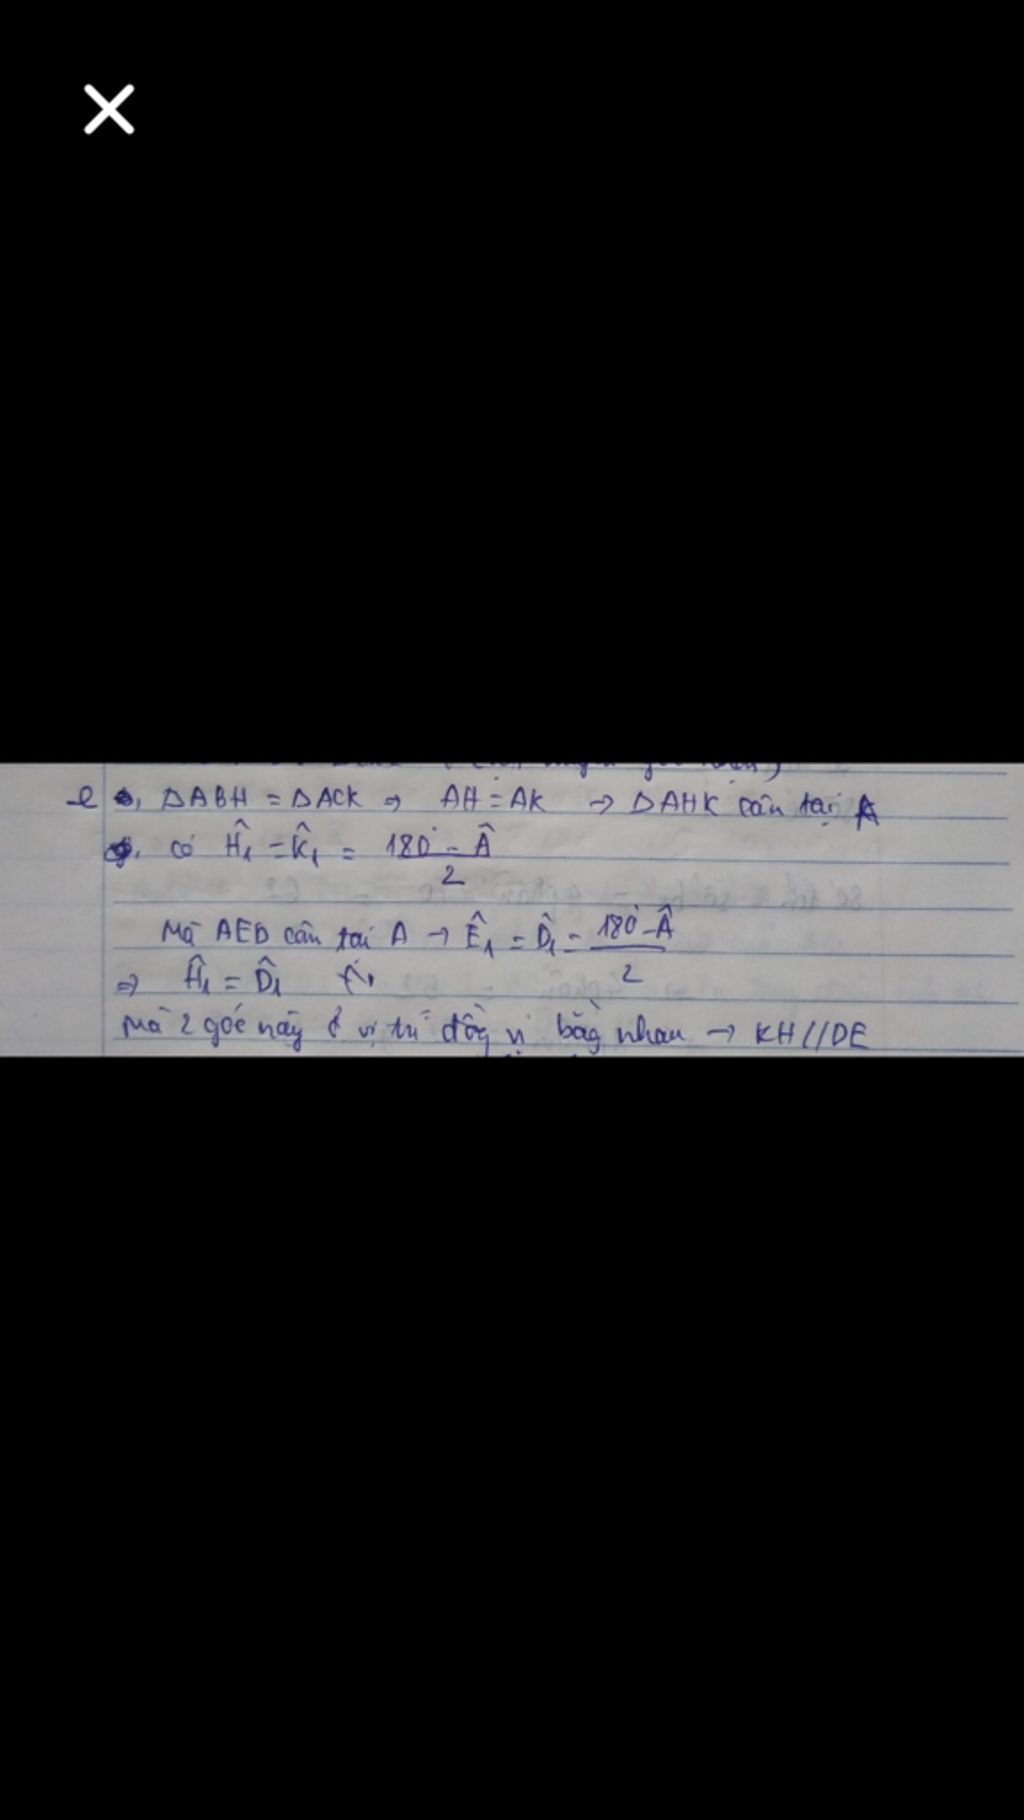 e, ΔABH = ΔACK ⇒ AH = AK → ΔAHK cân tại A
có Ĥ₁ = K̂₁ = (180° - Â)/2
Mà AED cân tại A → Ê₁ = D̂₁ = (180° - Â)/2
⇒ Ĥ₁ = D̂₁
Mà 2 góc này ở vị trí đồg vị bằg nhau → KH // DE